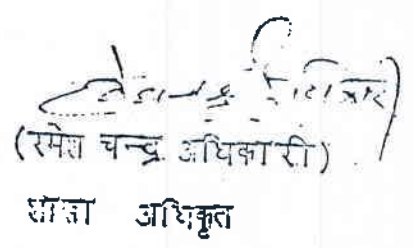 (रमेश चन्द्र अधिकारी)
शाखा अधिकृत